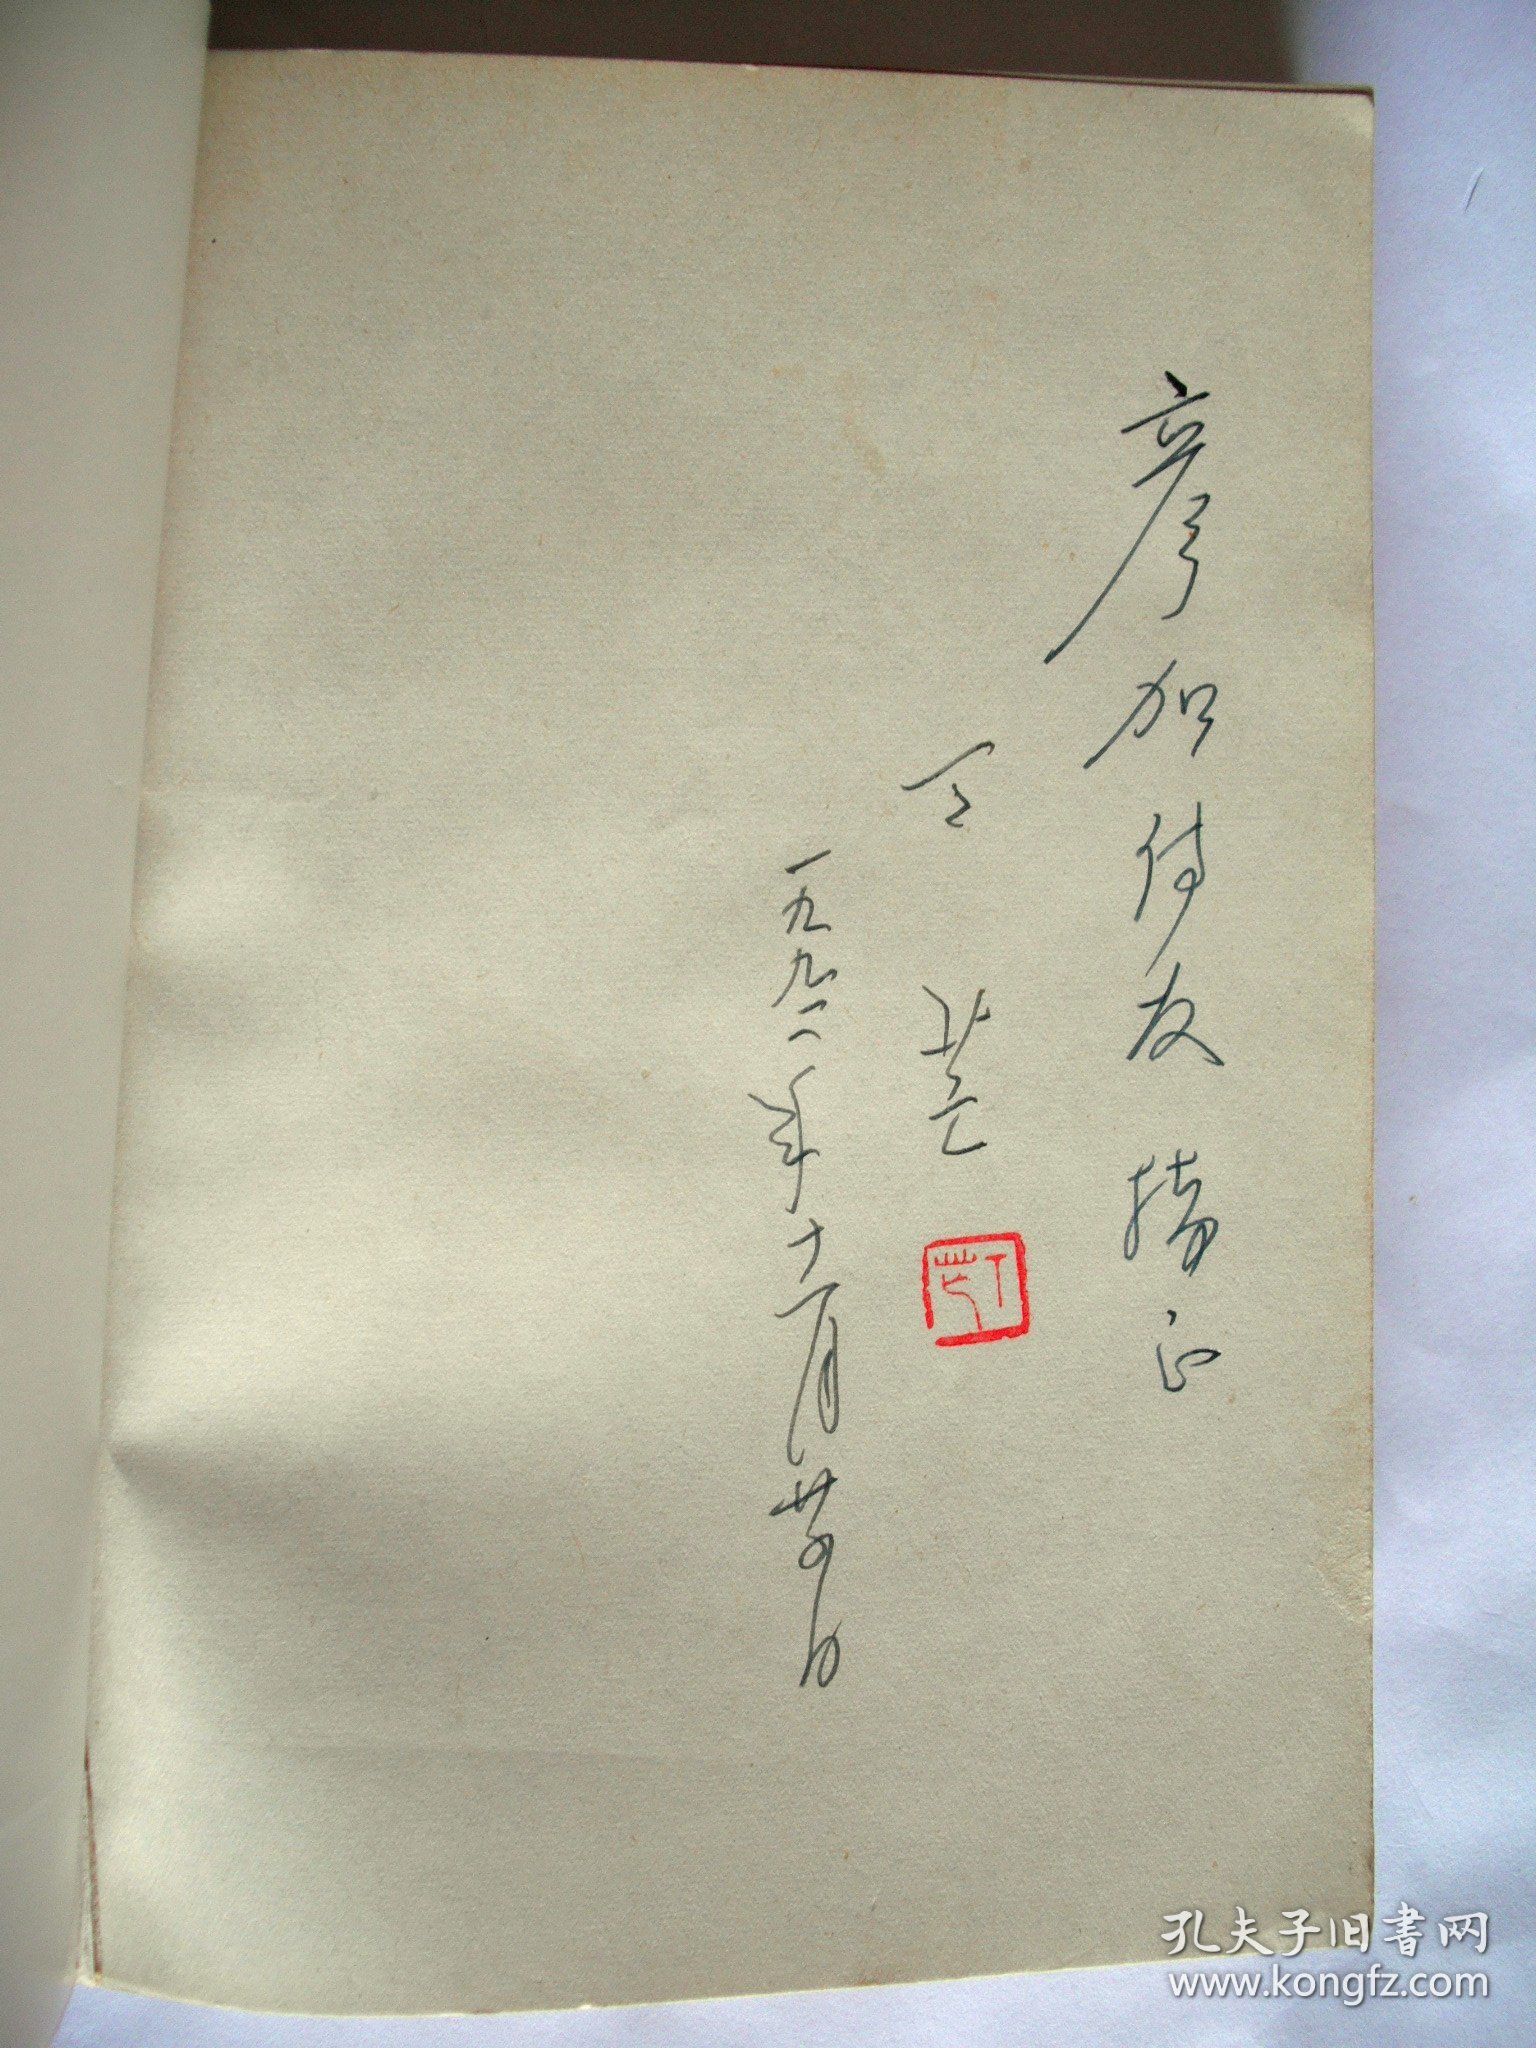 彦加诗友 指正
丁芒
丁芒
一九九二年十一月廿五日
孔夫子旧书网
www.kongfz.com